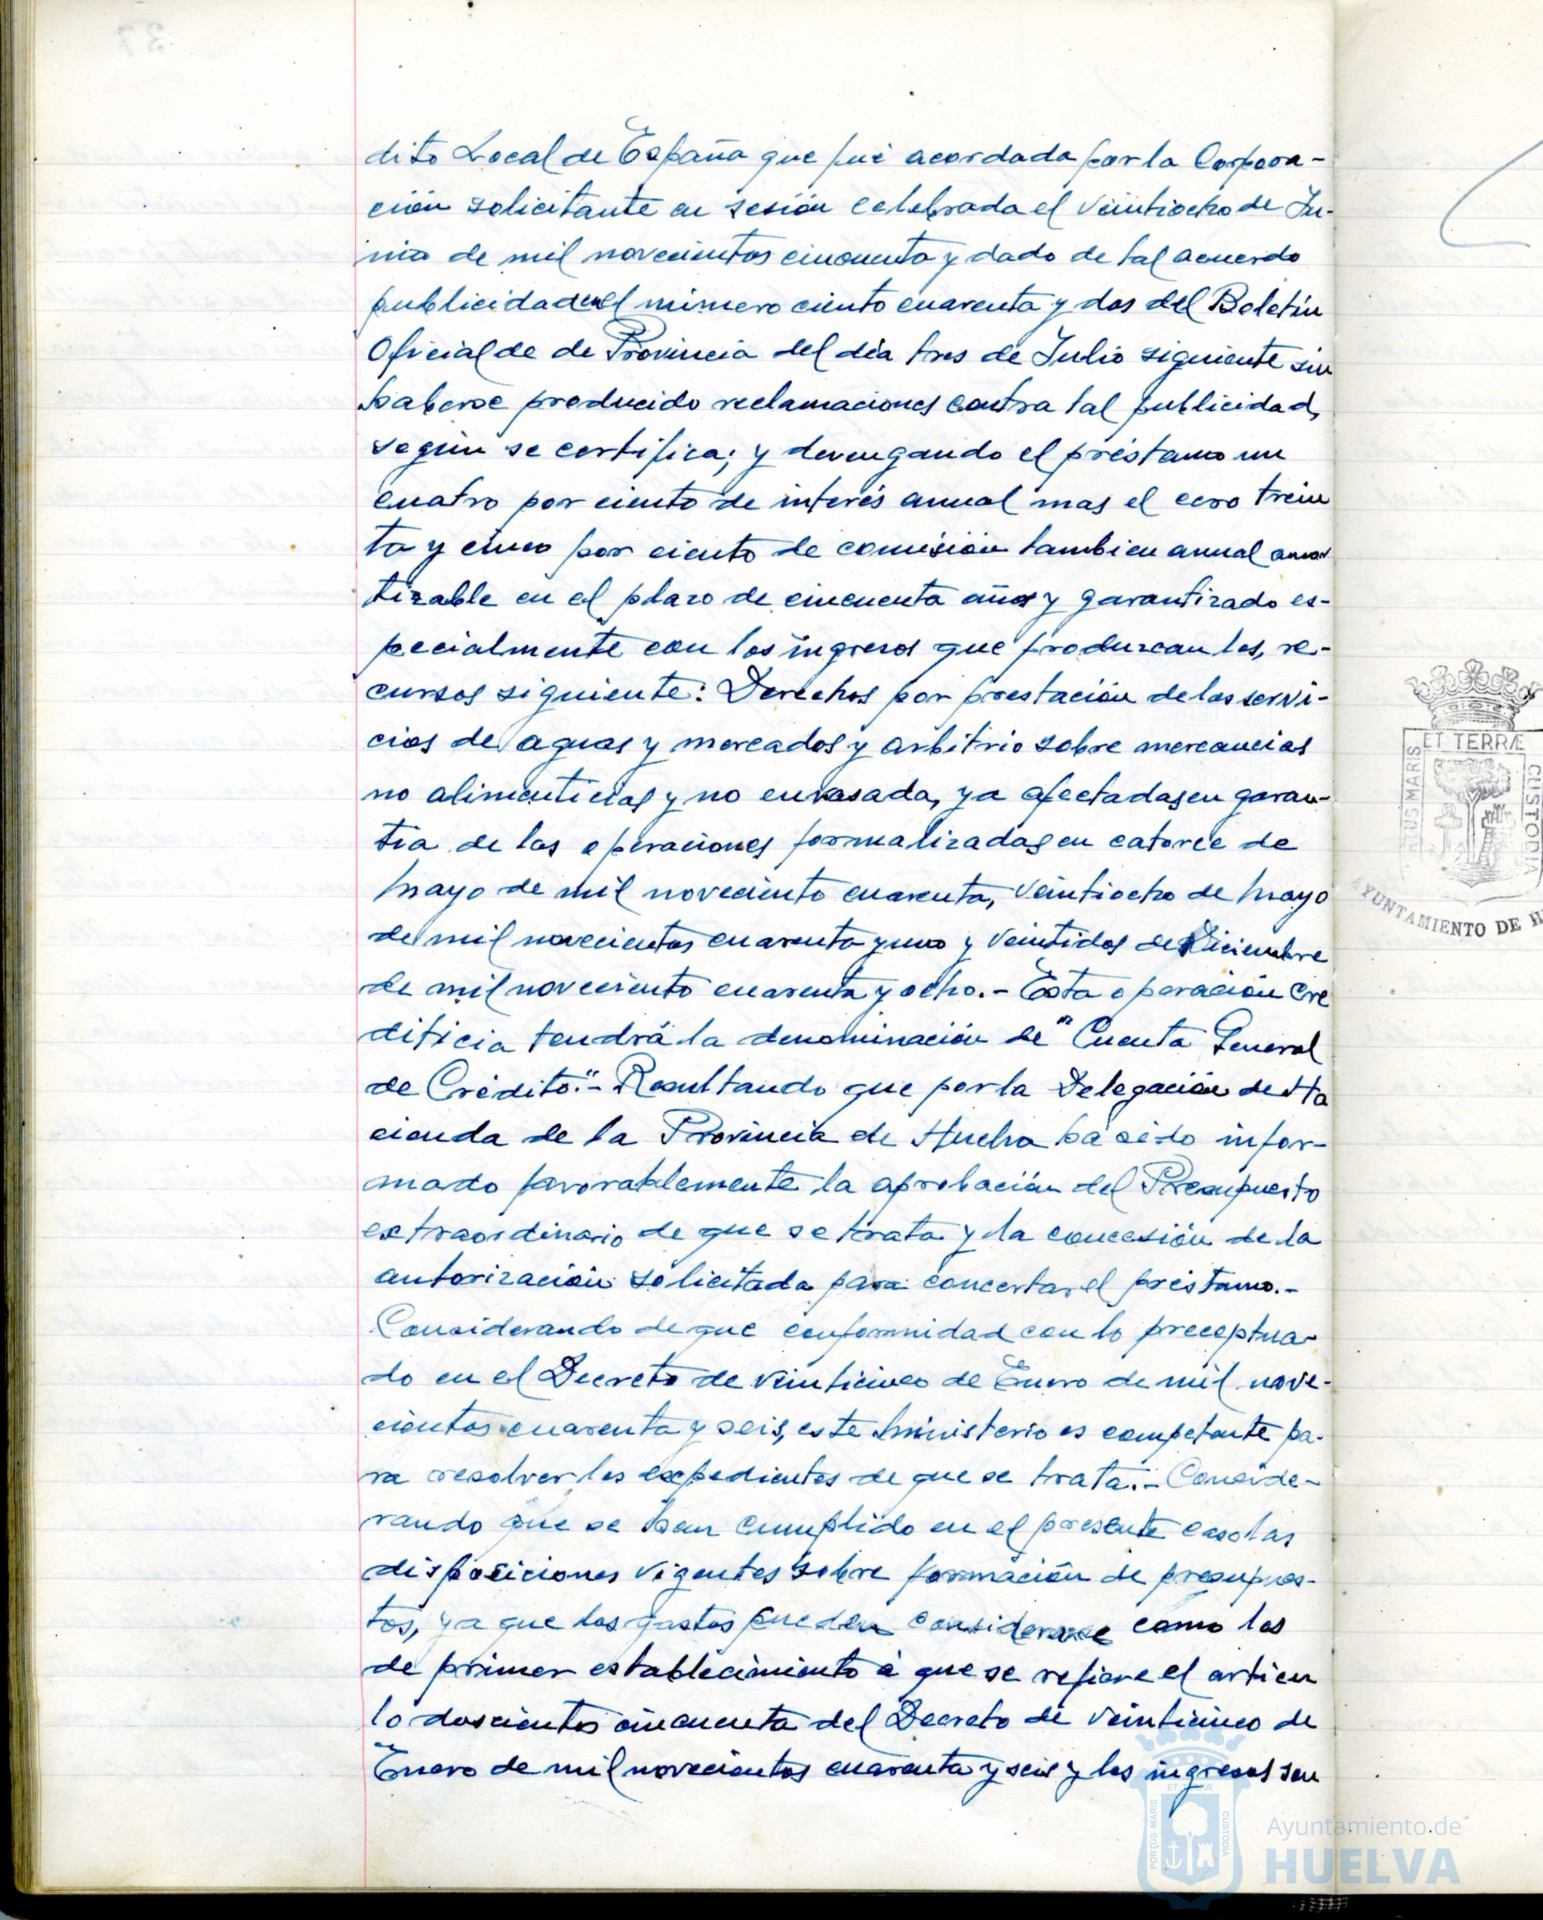 dito Local de España que fué acordada por la Corpora-
ción solicitante en sesión celebrada el veintiocho de Ju-
nio de mil novecientos cincuenta y dado de tal acuerdo
publicidad en el número ciento cuarenta y dos del Boletín
Oficial de de Provincia del día tres de Julio siguiente sin
haberse producido reclamaciones contra tal publicidad,
según se certifica; y devengando el préstamo un
cuatro por ciento de interés anual mas el cero trein
ta y cinco por ciento de comisión tambien anual amor
tizable en el plazo de cincuenta años y garantizado es-
pecialmente con los ingresos que produzcan los, re-
cursos siguiente: Derechos por prestación de los servi-
cios de aguas y mercados y arbitrio sobre mercancias
no alimenticias y no envasada, ya afectadas en garan-
tia de las operaciones formalizadas en catorce de
Mayo de mil noveciento cuarenta, veintiocho de Mayo
de mil novecientos cuarenta y uno y veintidos de Diciembre
de mil noveciento cuarenta y ocho.- Esta operación cre
diticia tendrá la denominación de "Cuenta General
de Crédito".- Resultando que por la Delegación de Ha
cienda de la Provincia de Huelva ha sido infor-
mado favorablemente la aprobación del Presupuesto
extraordinario de que se trata y la concesión de la
autorización solicitada para concertar el préstamo.-
Considerando de que conformidad con lo preceptua-
do en el Decreto de veinticinco de Enero de mil nove-
cientos cuarenta y seis, este Ministerio es competente pa-
ra resolver los expedientes de que se trata.- Conside-
rando que se han cumplido en el presente caso las
disposiciones vigentes sobre formación de presupues-
tos, ya que los gastos pueden considerarse como los
de primer establecimiento á que se refiere el articu
lo doscientos cincuenta del Decreto de veinticinco de
Enero de mil novecientos cuarenta y seis y los ingresos son
ET TERRÆ
CUSTODIA
AYUNTAMIENTO DE H
PORTUS MARIS
ET TERRÆ
CUSTODIA
Ayuntamiento de
HUELVA
37